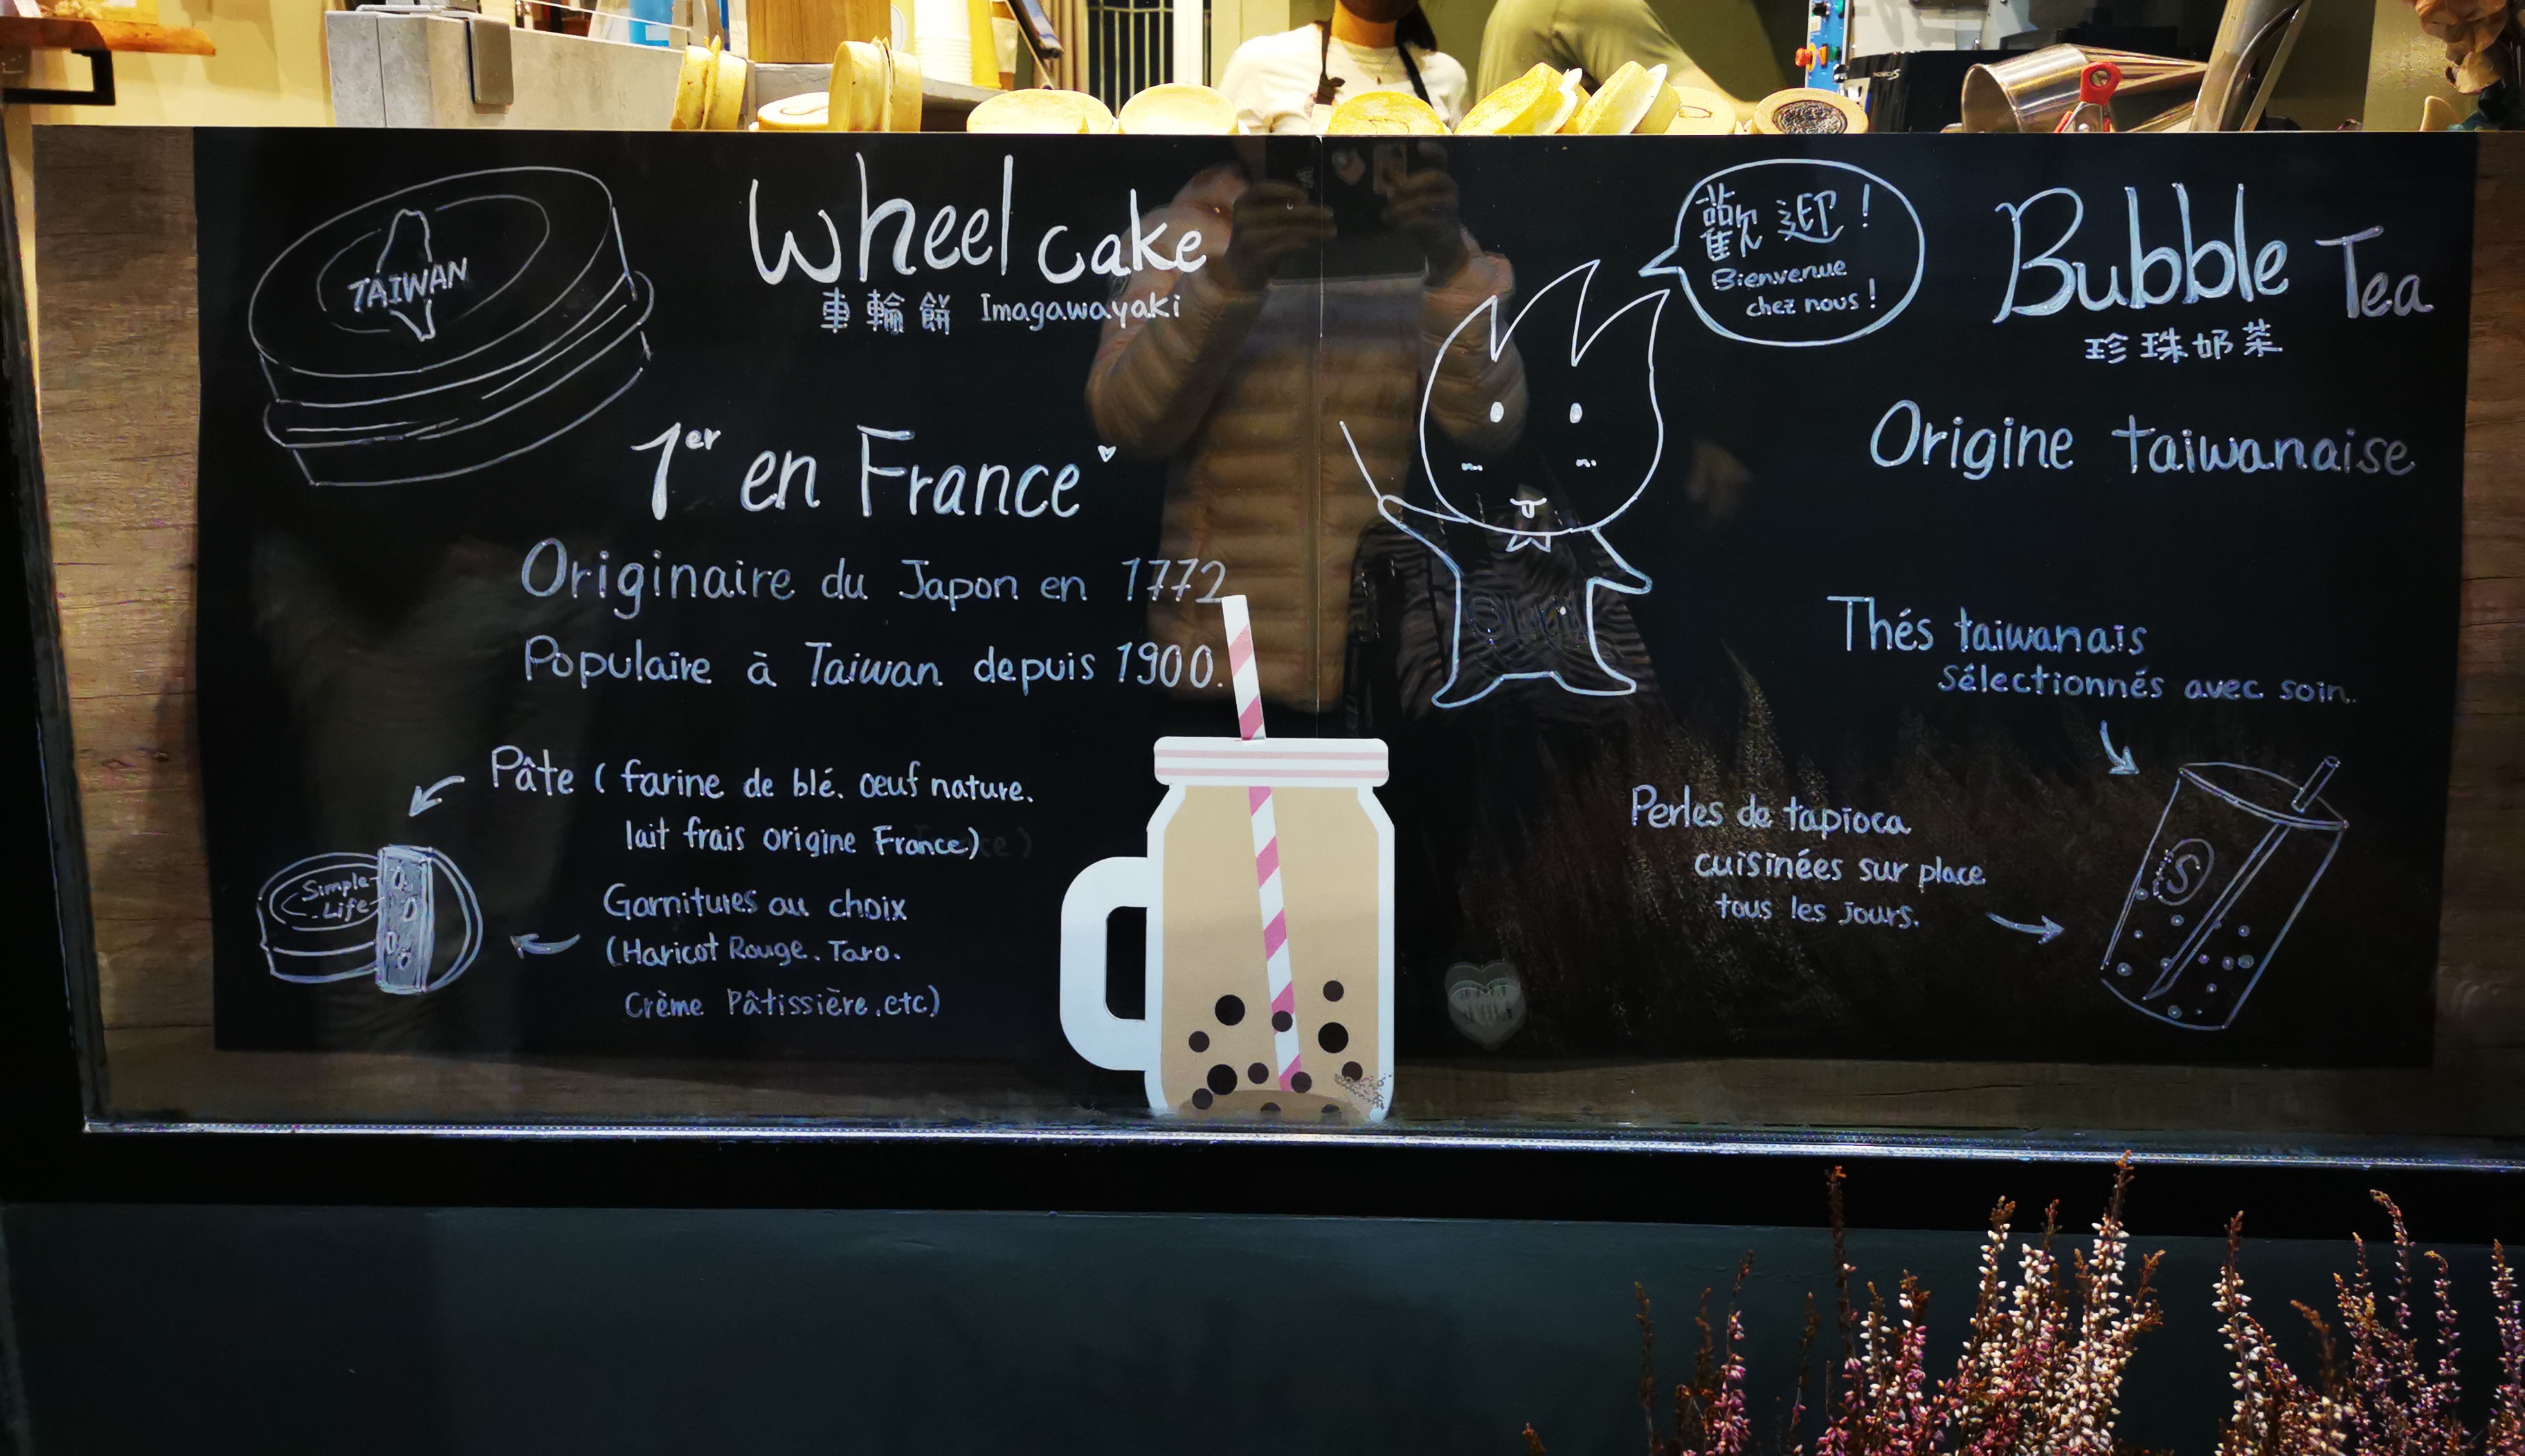 TAIWAN
Wheel cake
車輪餅 Imagawayaki
1er en France
Originaire du Japon en 1772
Populaire à Taiwan depuis 1900.
Pâte ( farine de blé. oeuf nature.
lait frais origine France)
Simple
Life
Garnitures au choix
(Haricot Rouge. Taro.
Crème Pâtissière.etc)
歡迎!
Bienvenue
chez nous!
Bubble Tea
珍珠奶茶
Origine taiwanaise
Thés taiwanais
sélectionnés avec soin.
Perles de tapioca
cuisinées sur place
tous les jours.
S